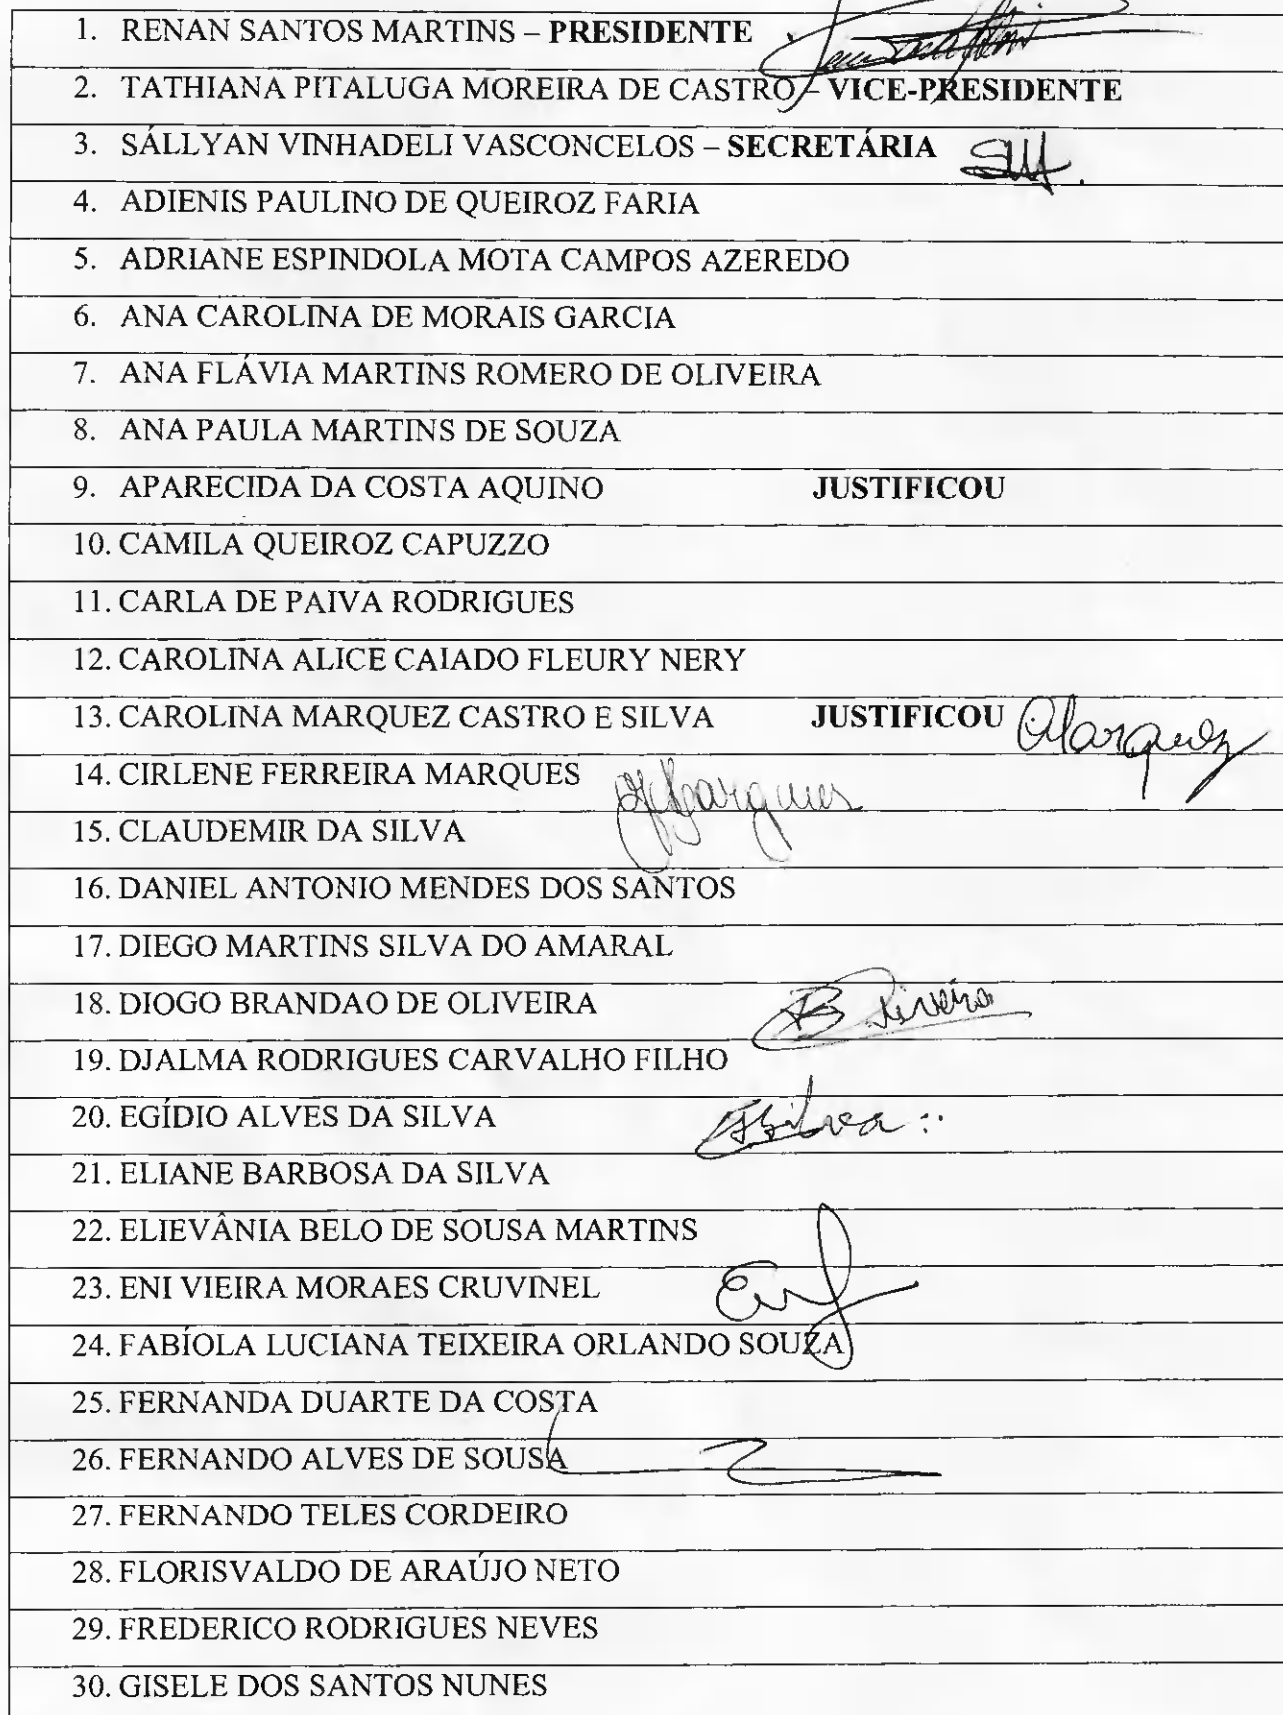 1. RENAN SANTOS MARTINS – PRESIDENTE
2. TATHIANA PITALUGA MOREIRA DE CASTRO – VICE-PRESIDENTE
3. SÁLLYAN VINHADELI VASCONCELOS – SECRETÁRIA
4. ADIENIS PAULINO DE QUEIROZ FARIA
5. ADRIANE ESPINDOLA MOTA CAMPOS AZEREDO
6. ANA CAROLINA DE MORAIS GARCIA
7. ANA FLÁVIA MARTINS ROMERO DE OLIVEIRA
8. ANA PAULA MARTINS DE SOUZA
9. APARECIDA DA COSTA AQUINO JUSTIFICOU
10. CAMILA QUEIROZ CAPUZZO
11. CARLA DE PAIVA RODRIGUES
12. CAROLINA ALICE CAIADO FLEURY NERY
13. CAROLINA MARQUEZ CASTRO E SILVA JUSTIFICOU CMarquez
14. CIRLENE FERREIRA MARQUES
15. CLAUDEMIR DA SILVA
16. DANIEL ANTONIO MENDES DOS SANTOS
17. DIEGO MARTINS SILVA DO AMARAL
18. DIOGO BRANDAO DE OLIVEIRA
19. DJALMA RODRIGUES CARVALHO FILHO
20. EGÍDIO ALVES DA SILVA
21. ELIANE BARBOSA DA SILVA
22. ELIEVÂNIA BELO DE SOUSA MARTINS
23. ENI VIEIRA MORAES CRUVINEL
24. FABÍOLA LUCIANA TEIXEIRA ORLANDO SOUZA
25. FERNANDA DUARTE DA COSTA
26. FERNANDO ALVES DE SOUSA
27. FERNANDO TELES CORDEIRO
28. FLORISVALDO DE ARAÚJO NETO
29. FREDERICO RODRIGUES NEVES
30. GISELE DOS SANTOS NUNES